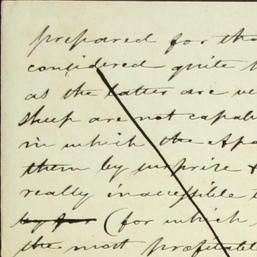 prepared for the
considered quite
as the latter are
sheep are not capab
in which the Apa
them by surprize &
really inaccessible
by far (for which
the most profitable